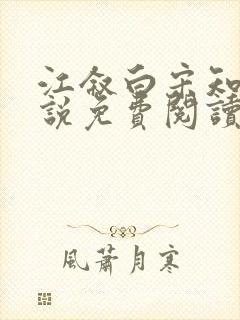 江叙白宋知
說免費閱讀
風蕭月寒